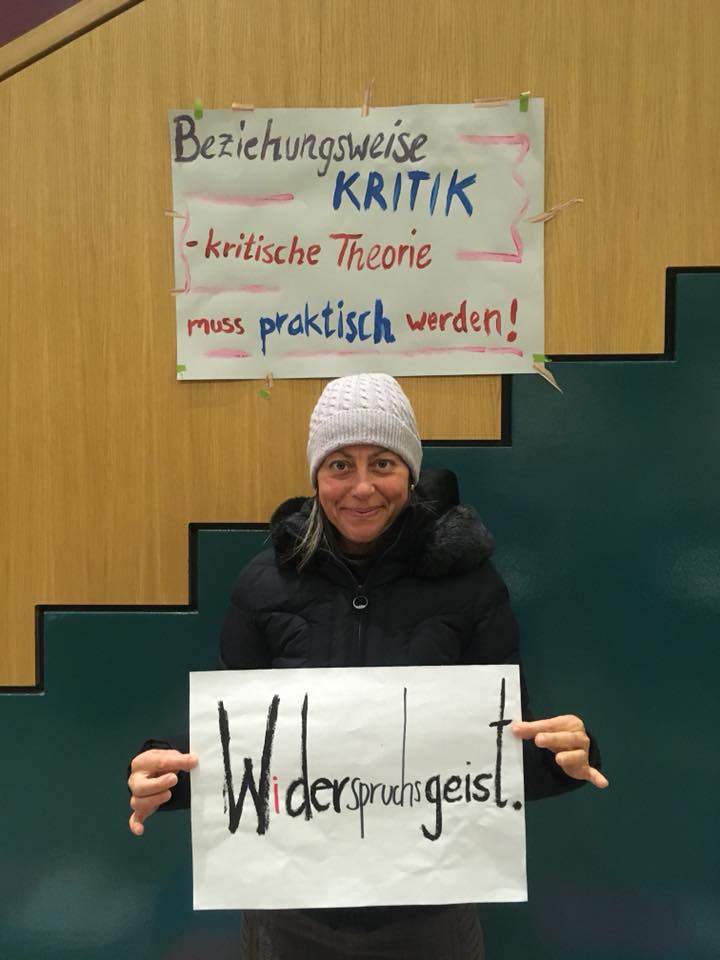 Beziehungsweise
KRITIK
-kritische Theorie
muss praktisch werden!
Widerspruchsgeist.